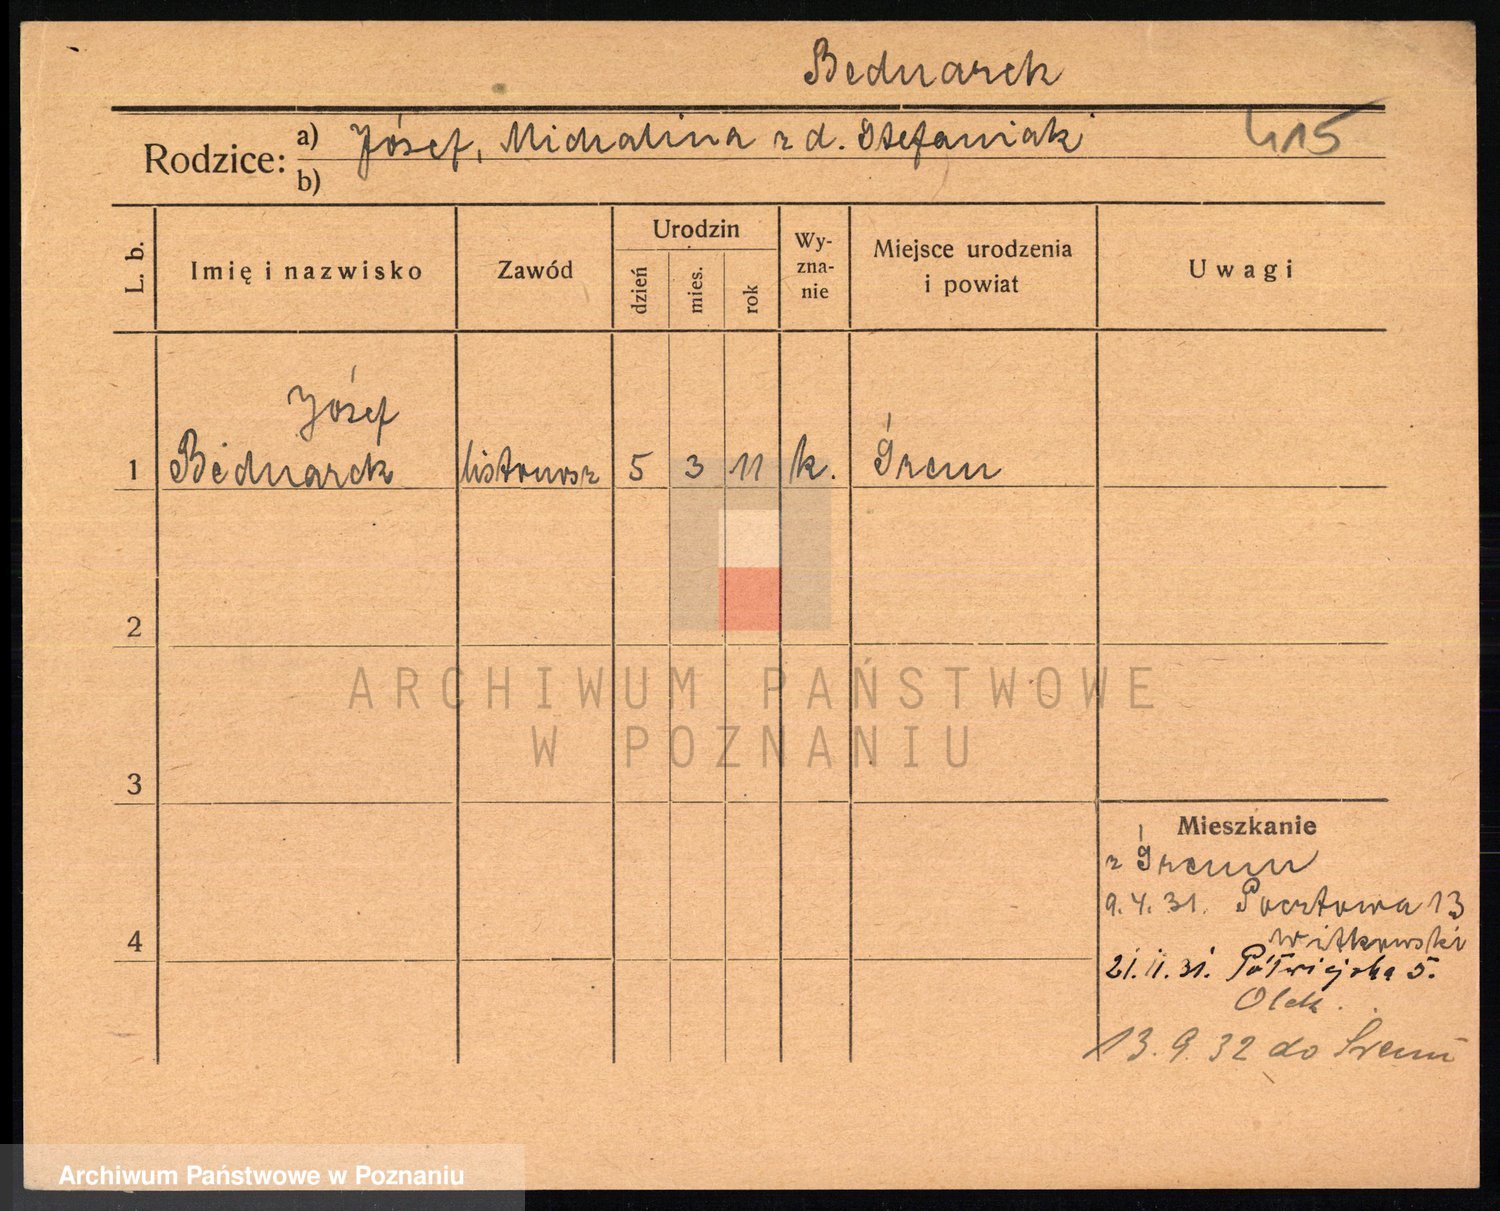 Bednarek
Rodzice: a) Józef, Michalina z d. Stefaniak
b)
415
L. b. Imię i nazwisko Zawód Urodzin dzień mies. rok Wy-zna-nie Miejsce urodzenia i powiat Uwagi
Józef
1 Bednarek listonosz 5 3 11 k. Śrem
2
3
4
Mieszkanie
z Śremu
9.4.31. Pocztowa 13
Witkowski
21.11.31. Półwiejska 5.
Olek.
13.9.32 do Śremu
ARCHIWUM PAŃSTWOWE
W POZNANIU
Archiwum Państwowe w Poznaniu